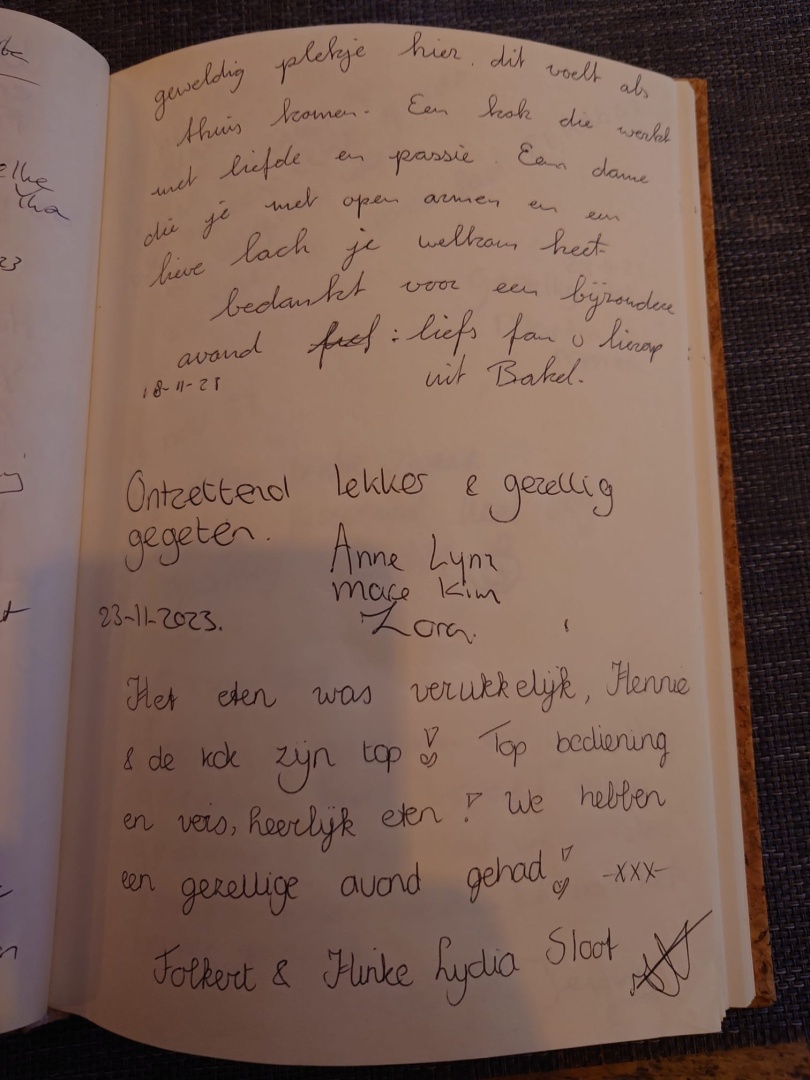 geweldig plekje hier, dit voelt als
thuis komen. Een kok die werkt
met liefde en passie. Een dame
die je met open armen en een
lieve lach je welkom heet.
bedankt voor een bijzondere
avond : liefs fan
uit Bakel.
18-11-23
Ontzettend lekker & gezellig
gegeten.
Anne Lynn
Kim
23-11-2023.
Zora.
Het eten was verukkelijk, Hennie
& de kok zijn top! Top bediening
en vers, heerlijk eten! We hebben
een gezellige avond gehad! -xxx-
Folkert & Hinke Lydia Sloot